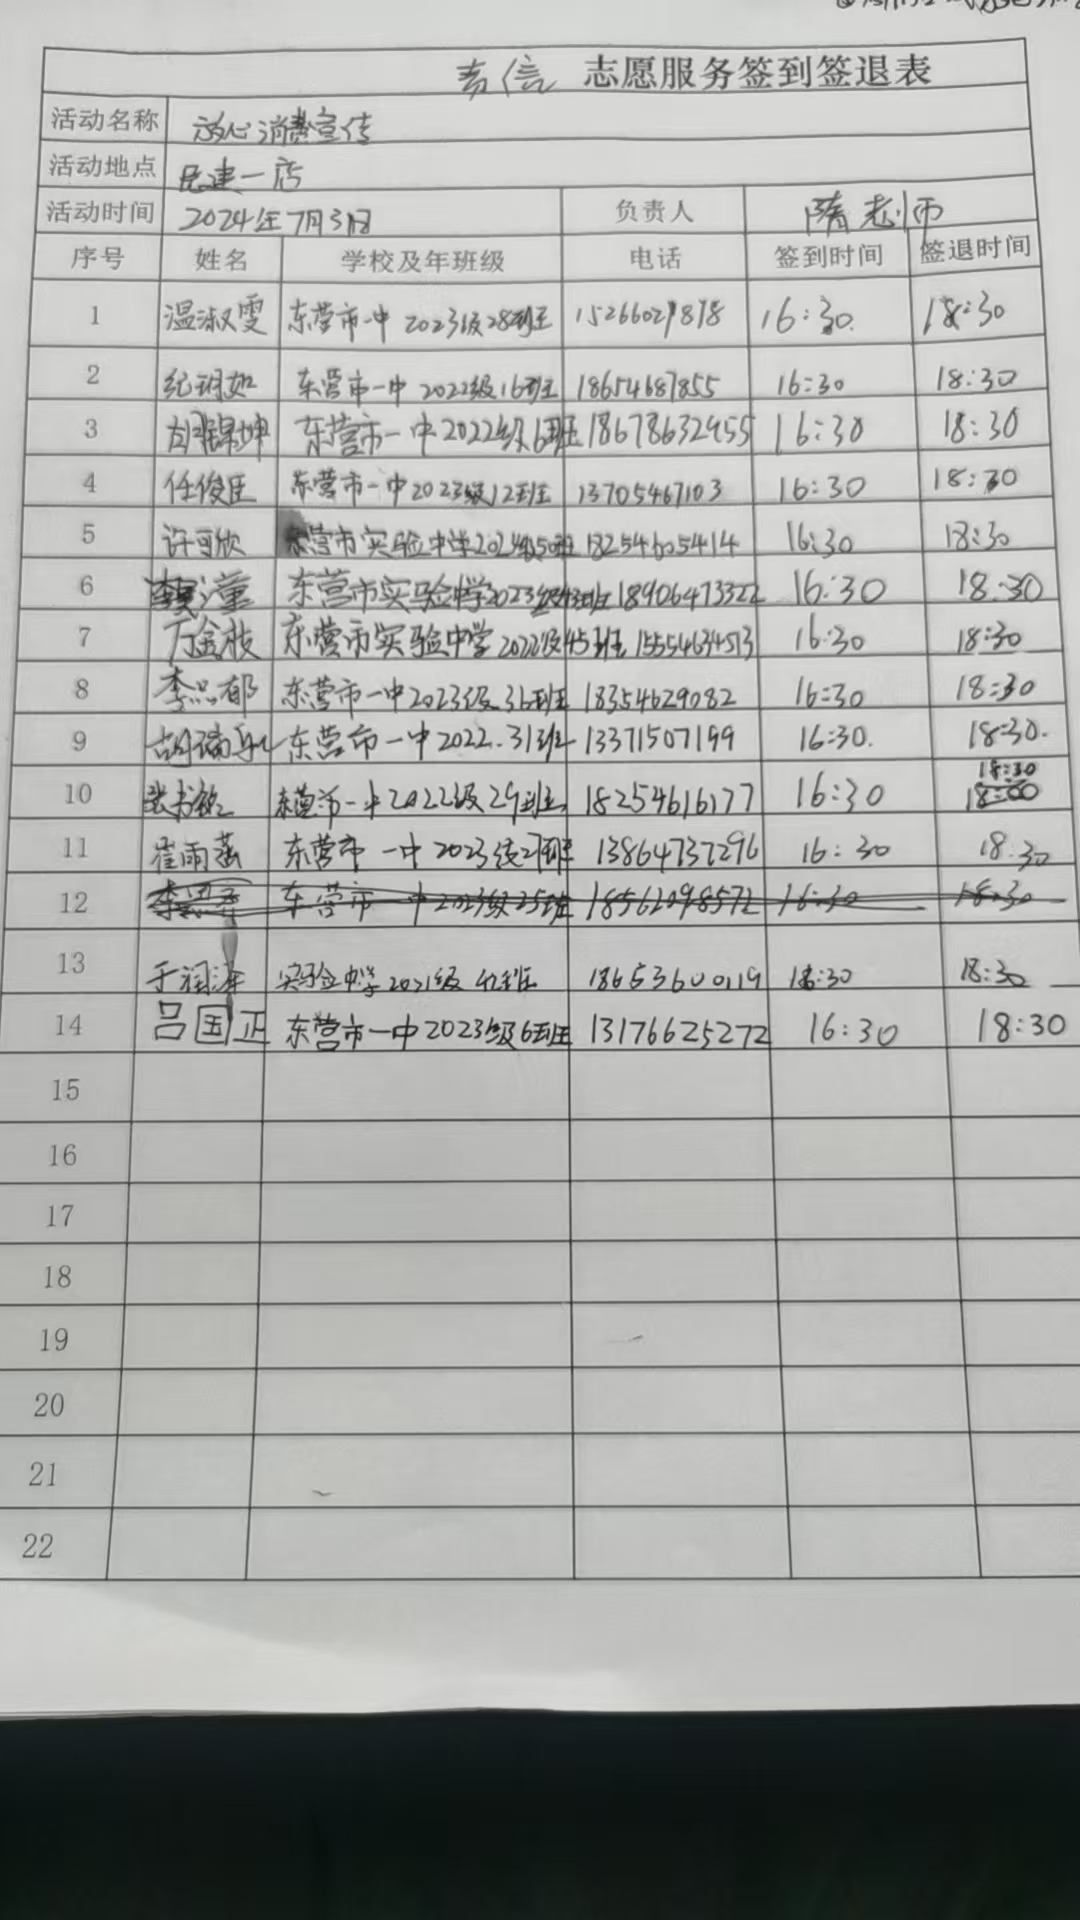 志愿服务签到签退表
活动名称 放心消费宣传
活动地点 民建一店
活动时间 2024年7月3日 负责人 隋老师
序号 姓名 学校及年班级 电话 签到时间 签退时间
1 温淑雯 东营市一中 2023级28班 15266029898 16:30 18:30
2 纪玥如 东营市一中 2022级16班 18654687855 16:30 18:30
3 东营市一中2022级6班 18678632955 16:30 18:30
4 任俊臣 东营市一中2023级12班 13705467103 16:30 18:30
5 许可欣 东营市实验中学 182546054414 16:30 18:30
6 东营市实验中学2023级43班 18906473322 16:30 18:30
7 万金枝 东营市实验中学2022级45班 15554634513 16:30 18:30
8 李思郁 东营市一中2023级36班 18354629082 16:30 18:30
9 东营市一中2022.31班 13371507199 16:30. 18:30.
18:30
10 东营市一中2022级29班 18254616177 16:30 18:00
11 崔雨菡 东营市一中2023级 13864737296 16:30 18:30
12 东营市一中2023级25班 18562098572 16:30 18:30
13 于润泽 实验中学2021级42班 18653600119 18:30 18:30
14 吕国正 东营市一中2023级6班 13176625272 16:30 18:30
15
16
17
18
19
20
21
22